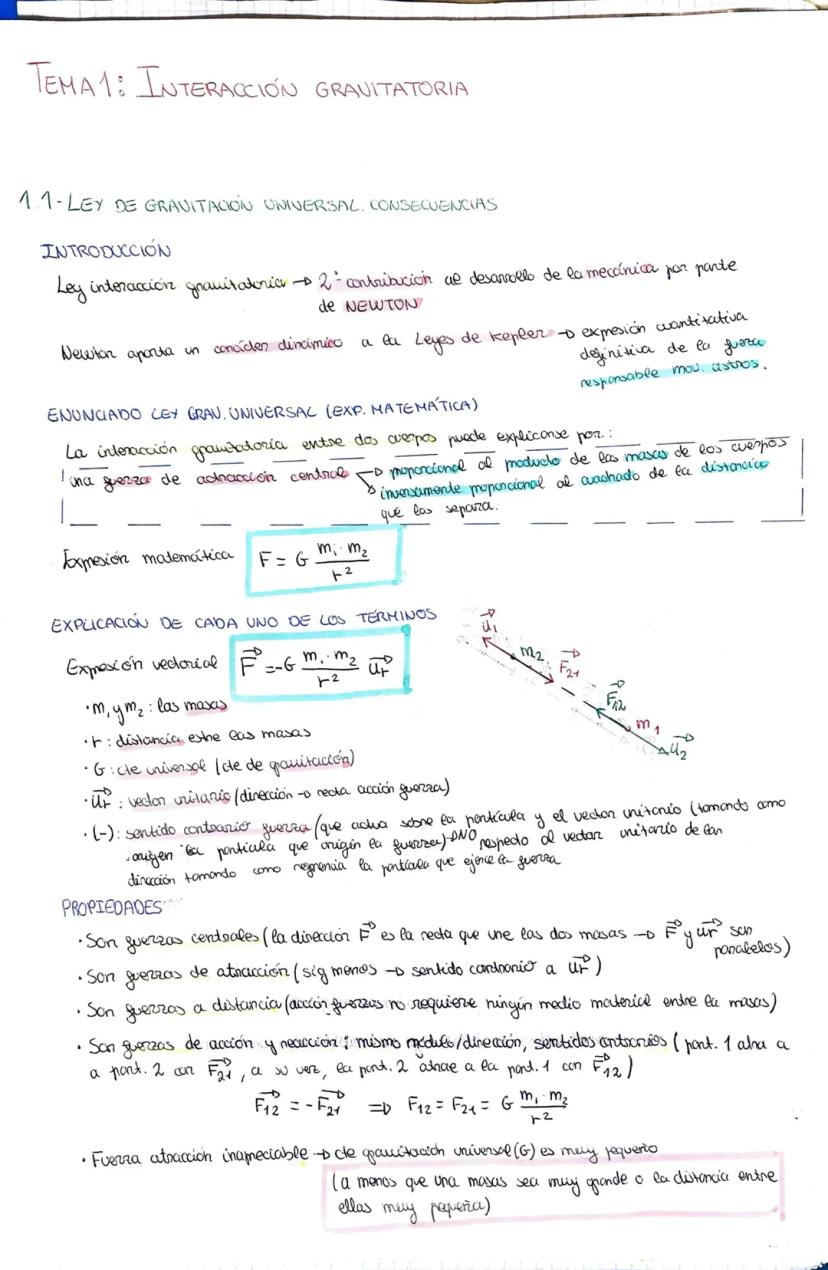 TEMA 1: INTERACCIÓN GRAVITATORIA
1.1- LEY DE GRAVITACIÓN UNIVERSAL. CONSECUENCIAS
INTRODUCCIÓN
Ley interacción gravitatoria → 2ª contribución al desarrollo de la mecánica por parte
de NEWTON
Newton aporta un carácter dinámico a la Leyes de Kepler → expresión cuantitativa
definitiva de la fuerza
responsable mov. astros.
ENUNCIADO LEY GRAV. UNIVERSAL (EXP. MATEMÁTICA)
La interacción gravitatoria entre dos cuerpos puede explicarse por:
una fuerza de actracción central → proporcional al producto de las masas de los cuerpos
→ inversamente proporcional al cuadrado de la distancia
que los separa.
Expresión matemática F = G m₁·m₂ / r²
EXPLICACIÓN DE CADA UNO DE LOS TÉRMINOS
Expresión vectorial F⃗ = -G m₁·m₂ / r² u⃗r
u⃗₁
m₂
F⃗₂₁
F⃗₁₂
m₁
u⃗₂
· m₁ y m₂: las masas
· r: distancia entre las masas
· G: cte universal (cte de gravitación)
· u⃗r: vector unitario (dirección → recta acción fuerza)
· (-): sentido contrario fuerza (que actua sobre la partícula y el vector unitario (tomando como
origen la partícula que origin la fuerza) → NO respecto al vector unitario de
dirección tomando como referencia la partícula que ejerce la fuerza
PROPIEDADES
· Son fuerzas centrales (la dirección F⃗ es la recta que une las dos masas → F⃗ y u⃗r son
paralelos)
· Son fuerzas de atracción (sig menos → sentido contrario a u⃗r)
· Son fuerzas a distancia (acción fuerzas no requiere ningún medio material entre la masas)
· Son fuerzas de acción y reacción: mismo módulo/dirección, sentidos contrarios (part. 1 atrae a
a part. 2 con F⃗₂₁, a su vez, la part. 2 atrae a la part. 1 con F⃗₁₂)
F⃗₁₂ = -F⃗₂₁ ⇒ F₁₂ = F₂₁ = G m₁·m₂ / r²
· Fuerza atracción inapreciable → cte gravitación universal (G) es muy pequeño
(a menos que una masas sea muy grande o la distancia entre
ellas muy pequeña)